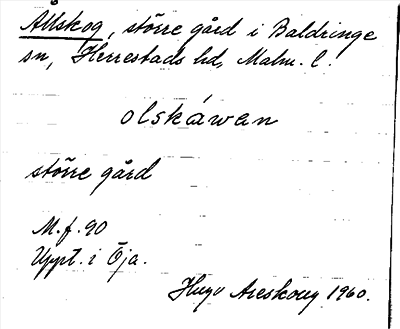 Allskog, större gård i Baldringe
sn, Herrestads hd, Malm. l.
olskáwan
större gård
M.f. 90
Uppt. i Öja.
Hugo Areskoug 1960.